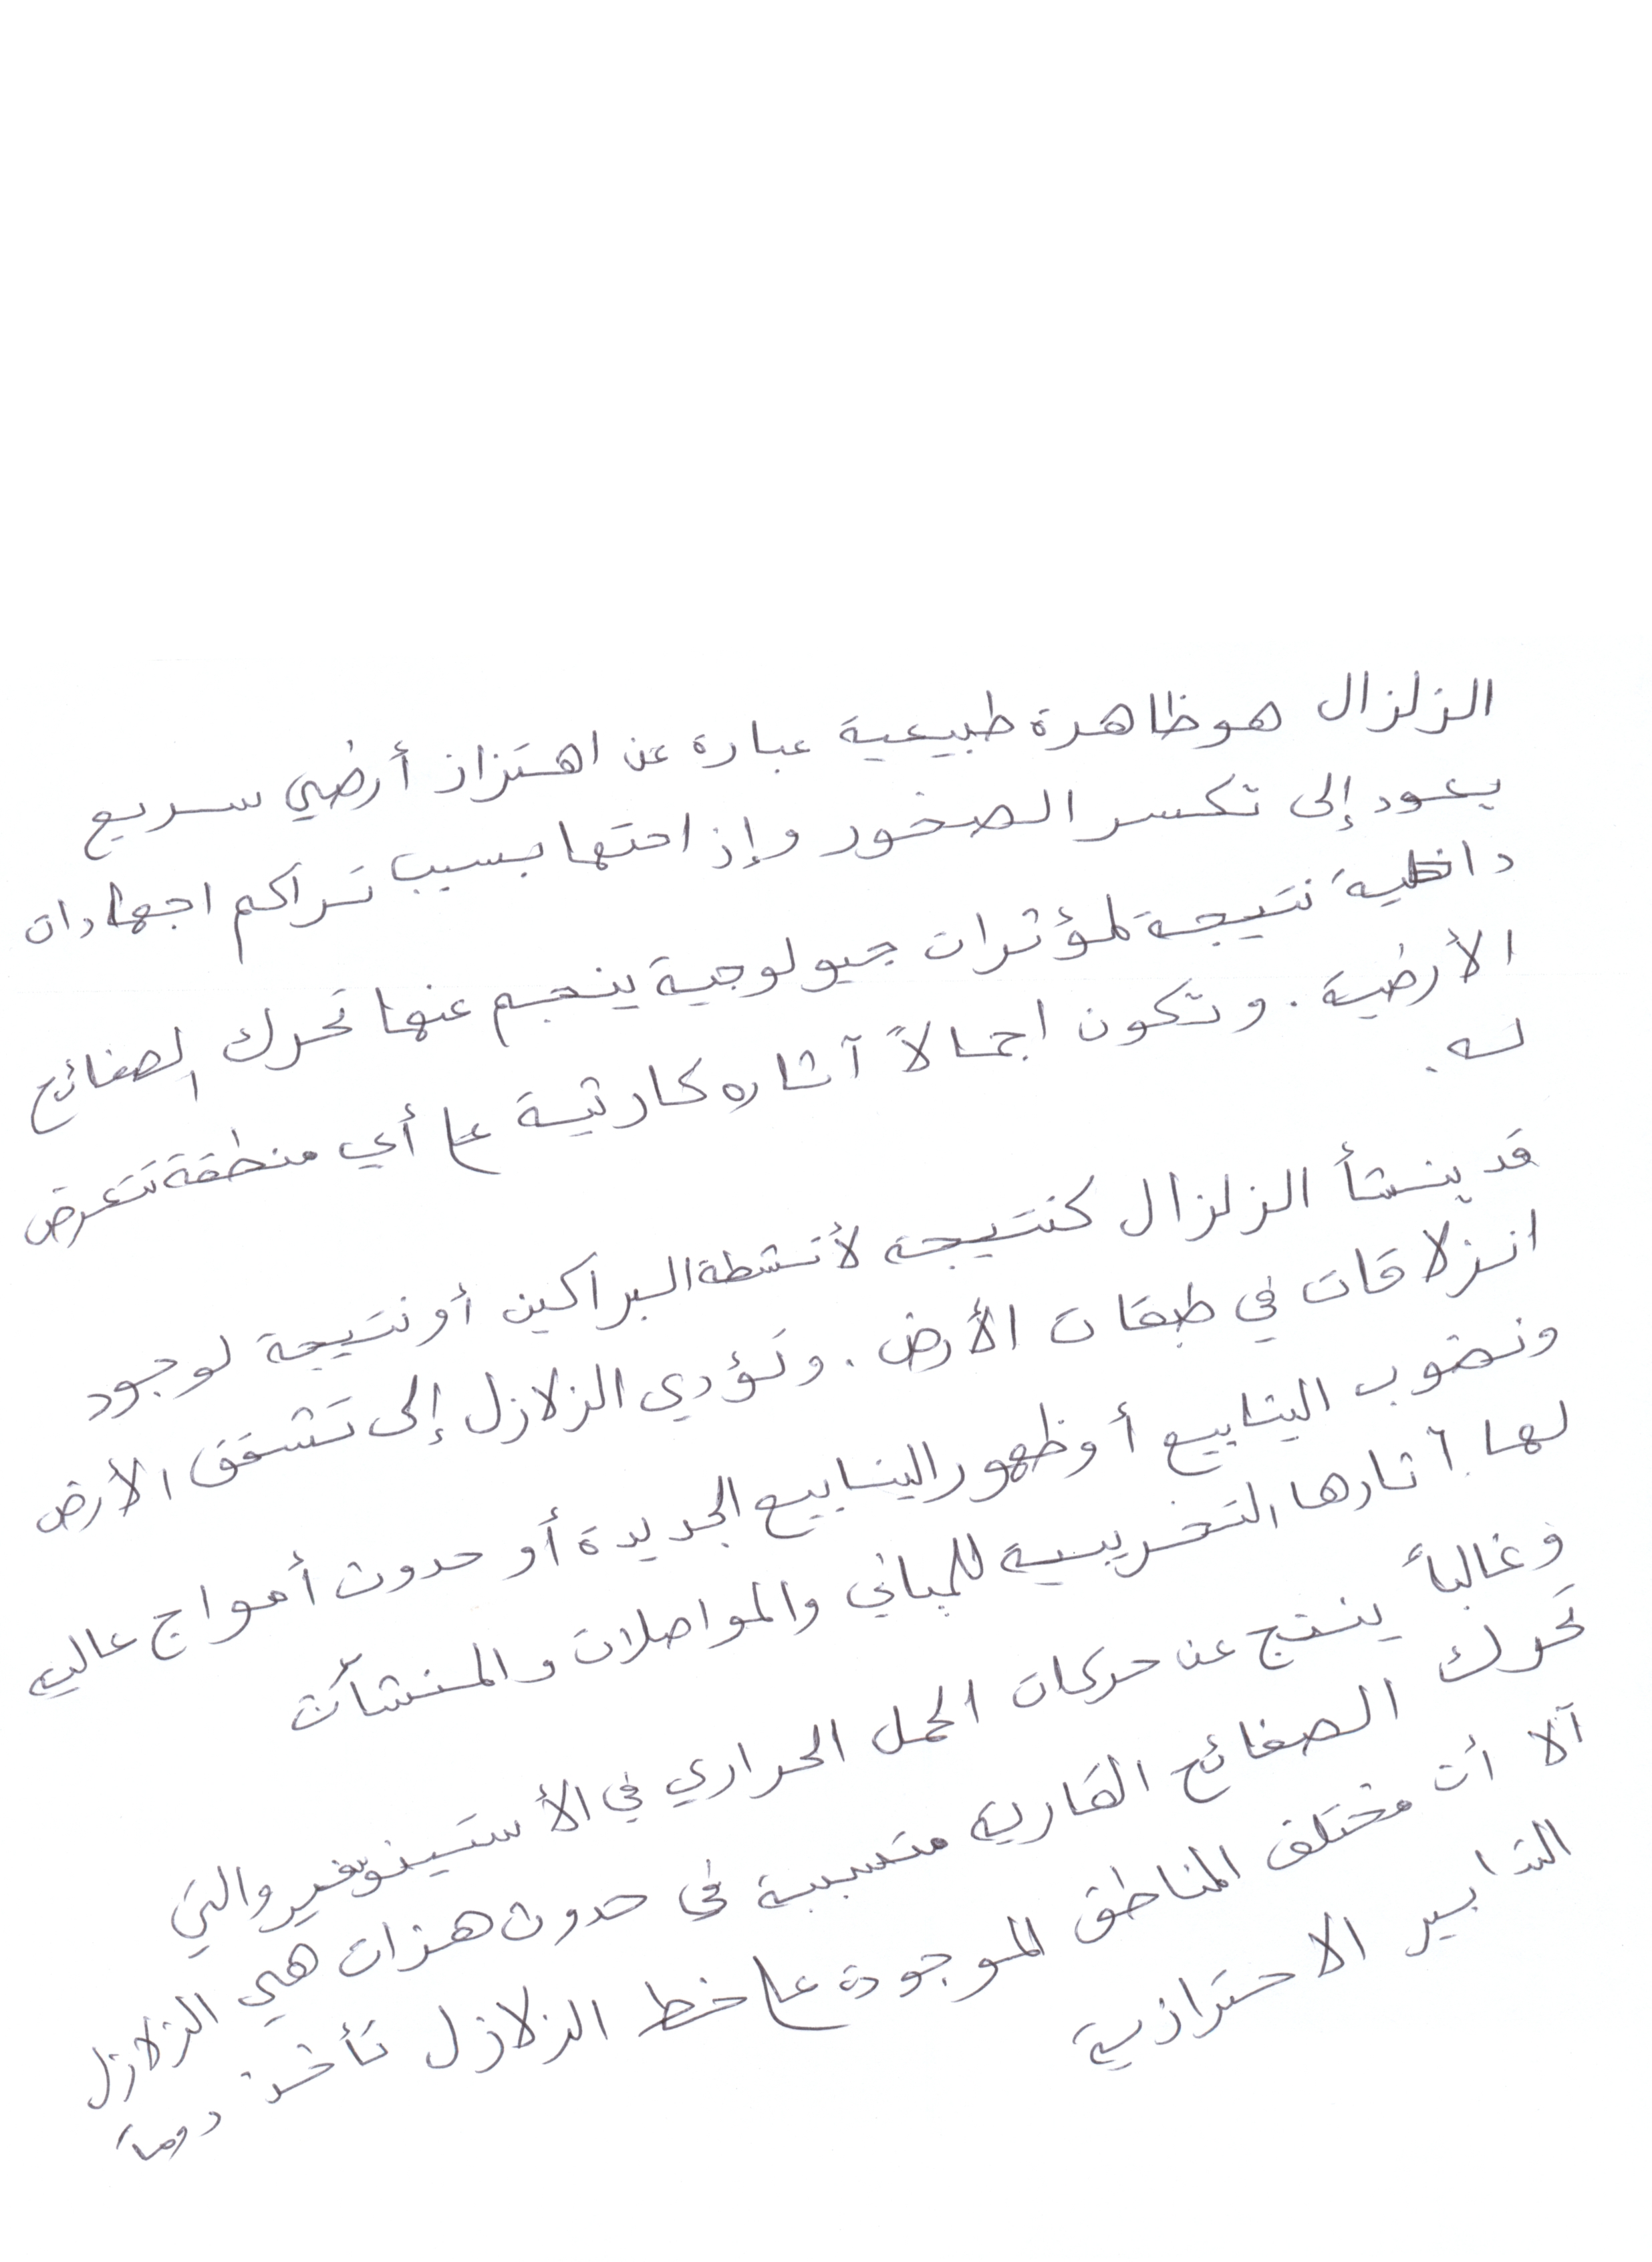 الزلزال هو ظاهرة طبيعية عبارة عن اهتزاز أرضي سريع
يعود إلى تكسر الصخور وإزاحتها بسبب تراكم اجهادات
داخلية نتيجة لمؤثرات جيولوجية ينجم عنها تحرك الصفائح
الأرضية. وتكون اجمالاً آثاره كارثية على أي منطقة تتعرض
له.
قد ينشأ الزلزال كنتيجة لأنشطة البراكين أو نتيجة لوجود
انزلاقات في طبقات الأرض. وتؤدي الزلازل إلى تشقق الأرض
ونضوب الينابيع أو ظهور الينابيع الجديدة أو حدوث أمواج عالية
لها آثارها التخريبية للمباني والمواصلات والمنشآت
وغالباً ينتج عن حركات الحمل الحراري في الأستينوسفير والتي
تحرك الصفائح القارية متسببة في حدوث هزات هي الزلازل
ألا أن مختلف المناطق الموجودة على خط الزلازل تأخذ دوماً
التدابير الاحترازية